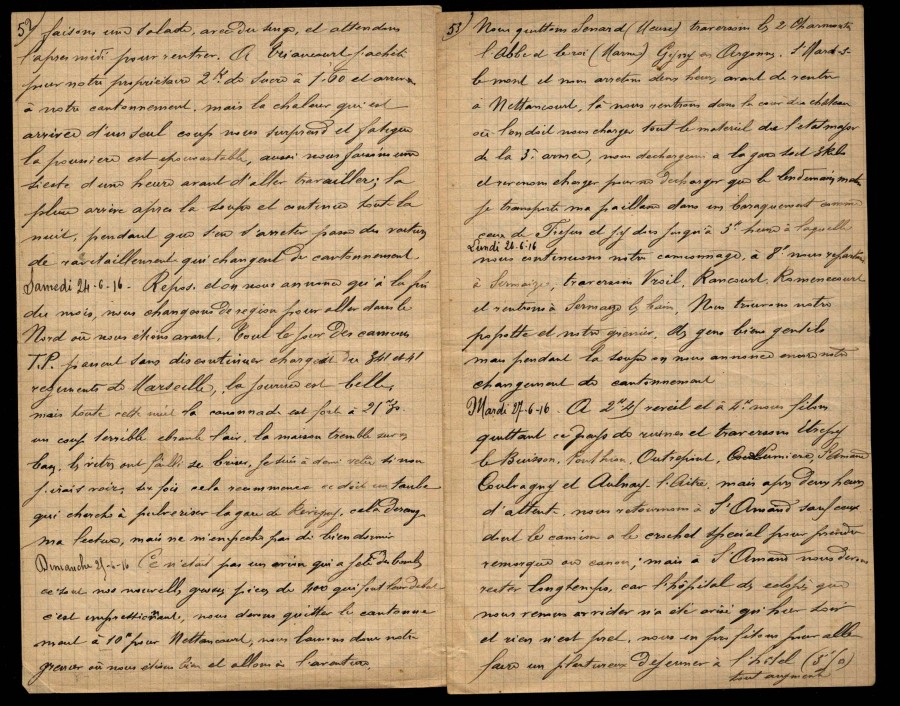 52/ faisons une salade, avec du singe, et attendons
l'apres midi pour rentrer. A Triaucourt j'achete
pour notre proprietaire 2 K de Sucre à 1.60 et arrivons
à notre cantonnement, mais la chaleur qui est
arrivée d'un seul coup nous surprend et fatigue
la poussiere est epouvantable, aussi nous faisons une
sieste d'une heure avant d'aller travailler; la
pluie arrive apres la soupe et continue tout la
nuit, pendant que s'en s'arreter passe des voitures
de ravitaillement qui changent de cantonnement.
Samedi 24-6-16 - Repos, et on nous annonce qu'à la fin
du mois, nous changeons de region pour aller dans le
Nord où nous étions avant. Tout le jour des camions
T.P. passent sans discontinuer chargés du 341 et 41
regiments de Marseille, la journée est belle,
mais toute cette nuit la canonnade est forte à 21 h 30
un coup terrible ebranle l'air, la maison tremble sur sa
base, les vitres ont failli se briser, je suis à demi vetu si non
j'irais voir, six fois cela recommence ce doit un taube
qui cherche à pulveriser la gare de Revigny, cela derange
ma lecture, mais ne m'empeche pas de bien dormir
Dimanche 25-6-16 Ce n'etait pas un avion qui a jeté des bombes
ce sont nos nouvelles grosses pieces de 400 qui font
c'est impressionant, nous devons quitter le cantonne
ment à 10 h pour Nettancourt, nous laissons donc notre
grenier où nous étions bien et allons à l'aventure.
53/ Nous quittons Senard (Meuse) traversons les 2 Charmonts
l'Abbé d le roi (Marne) Givry en Argonne. St Mard s
le mont et nous arretons deux heures, avant de rentrer
a Nettancourt, là nous rentrons dans la cour du château
où l'on doit nous charger tout le materiel de l'etat major
de la 3e armée, nous dechargeons a la gare
et revenons charger pour ne decharger que le lendemain matin
je transporte ma paillasse dans un baraquement comme
ceux de et j'y dors jusqu'à 5 h heure à laquelle
Lundi 26-6-16
nous continuons notre camionnage, à 8 h nous repartons
à Sermaize, traversons Vroil, Rancourt, Remenecourt
et rentrons à Sermaize les bains, Nous trouvons notre
popotte et notre grenier, des gens biens gentils
mais pendant la soupe on nous annonce encore notre
changement de cantonnement
Mardi 27-6-16. A 2 h 45 reveil et à 4 h nous filons
quittant ce pays de ruines et traversons Etrepy
le Buisson, Ponthion, Outrepont, Coulumiere, St Amand
Coulvagny et Aulnay-l'Aitre, mais apres deux heures
d'attente, nous retournons à St Amand sauf ceux
dont le camion a le crochet special pour prendre
remorque ou canon; mais à St Amand nous devons
rester longtemps, car l'hôpital des eclopés que
nous venons n'a été avisé qu'hier soir
et rien n'est pret, nous en profitons pour aller
faire un plantureux dejeuner à l'hôtel (3f50)
tout augmente